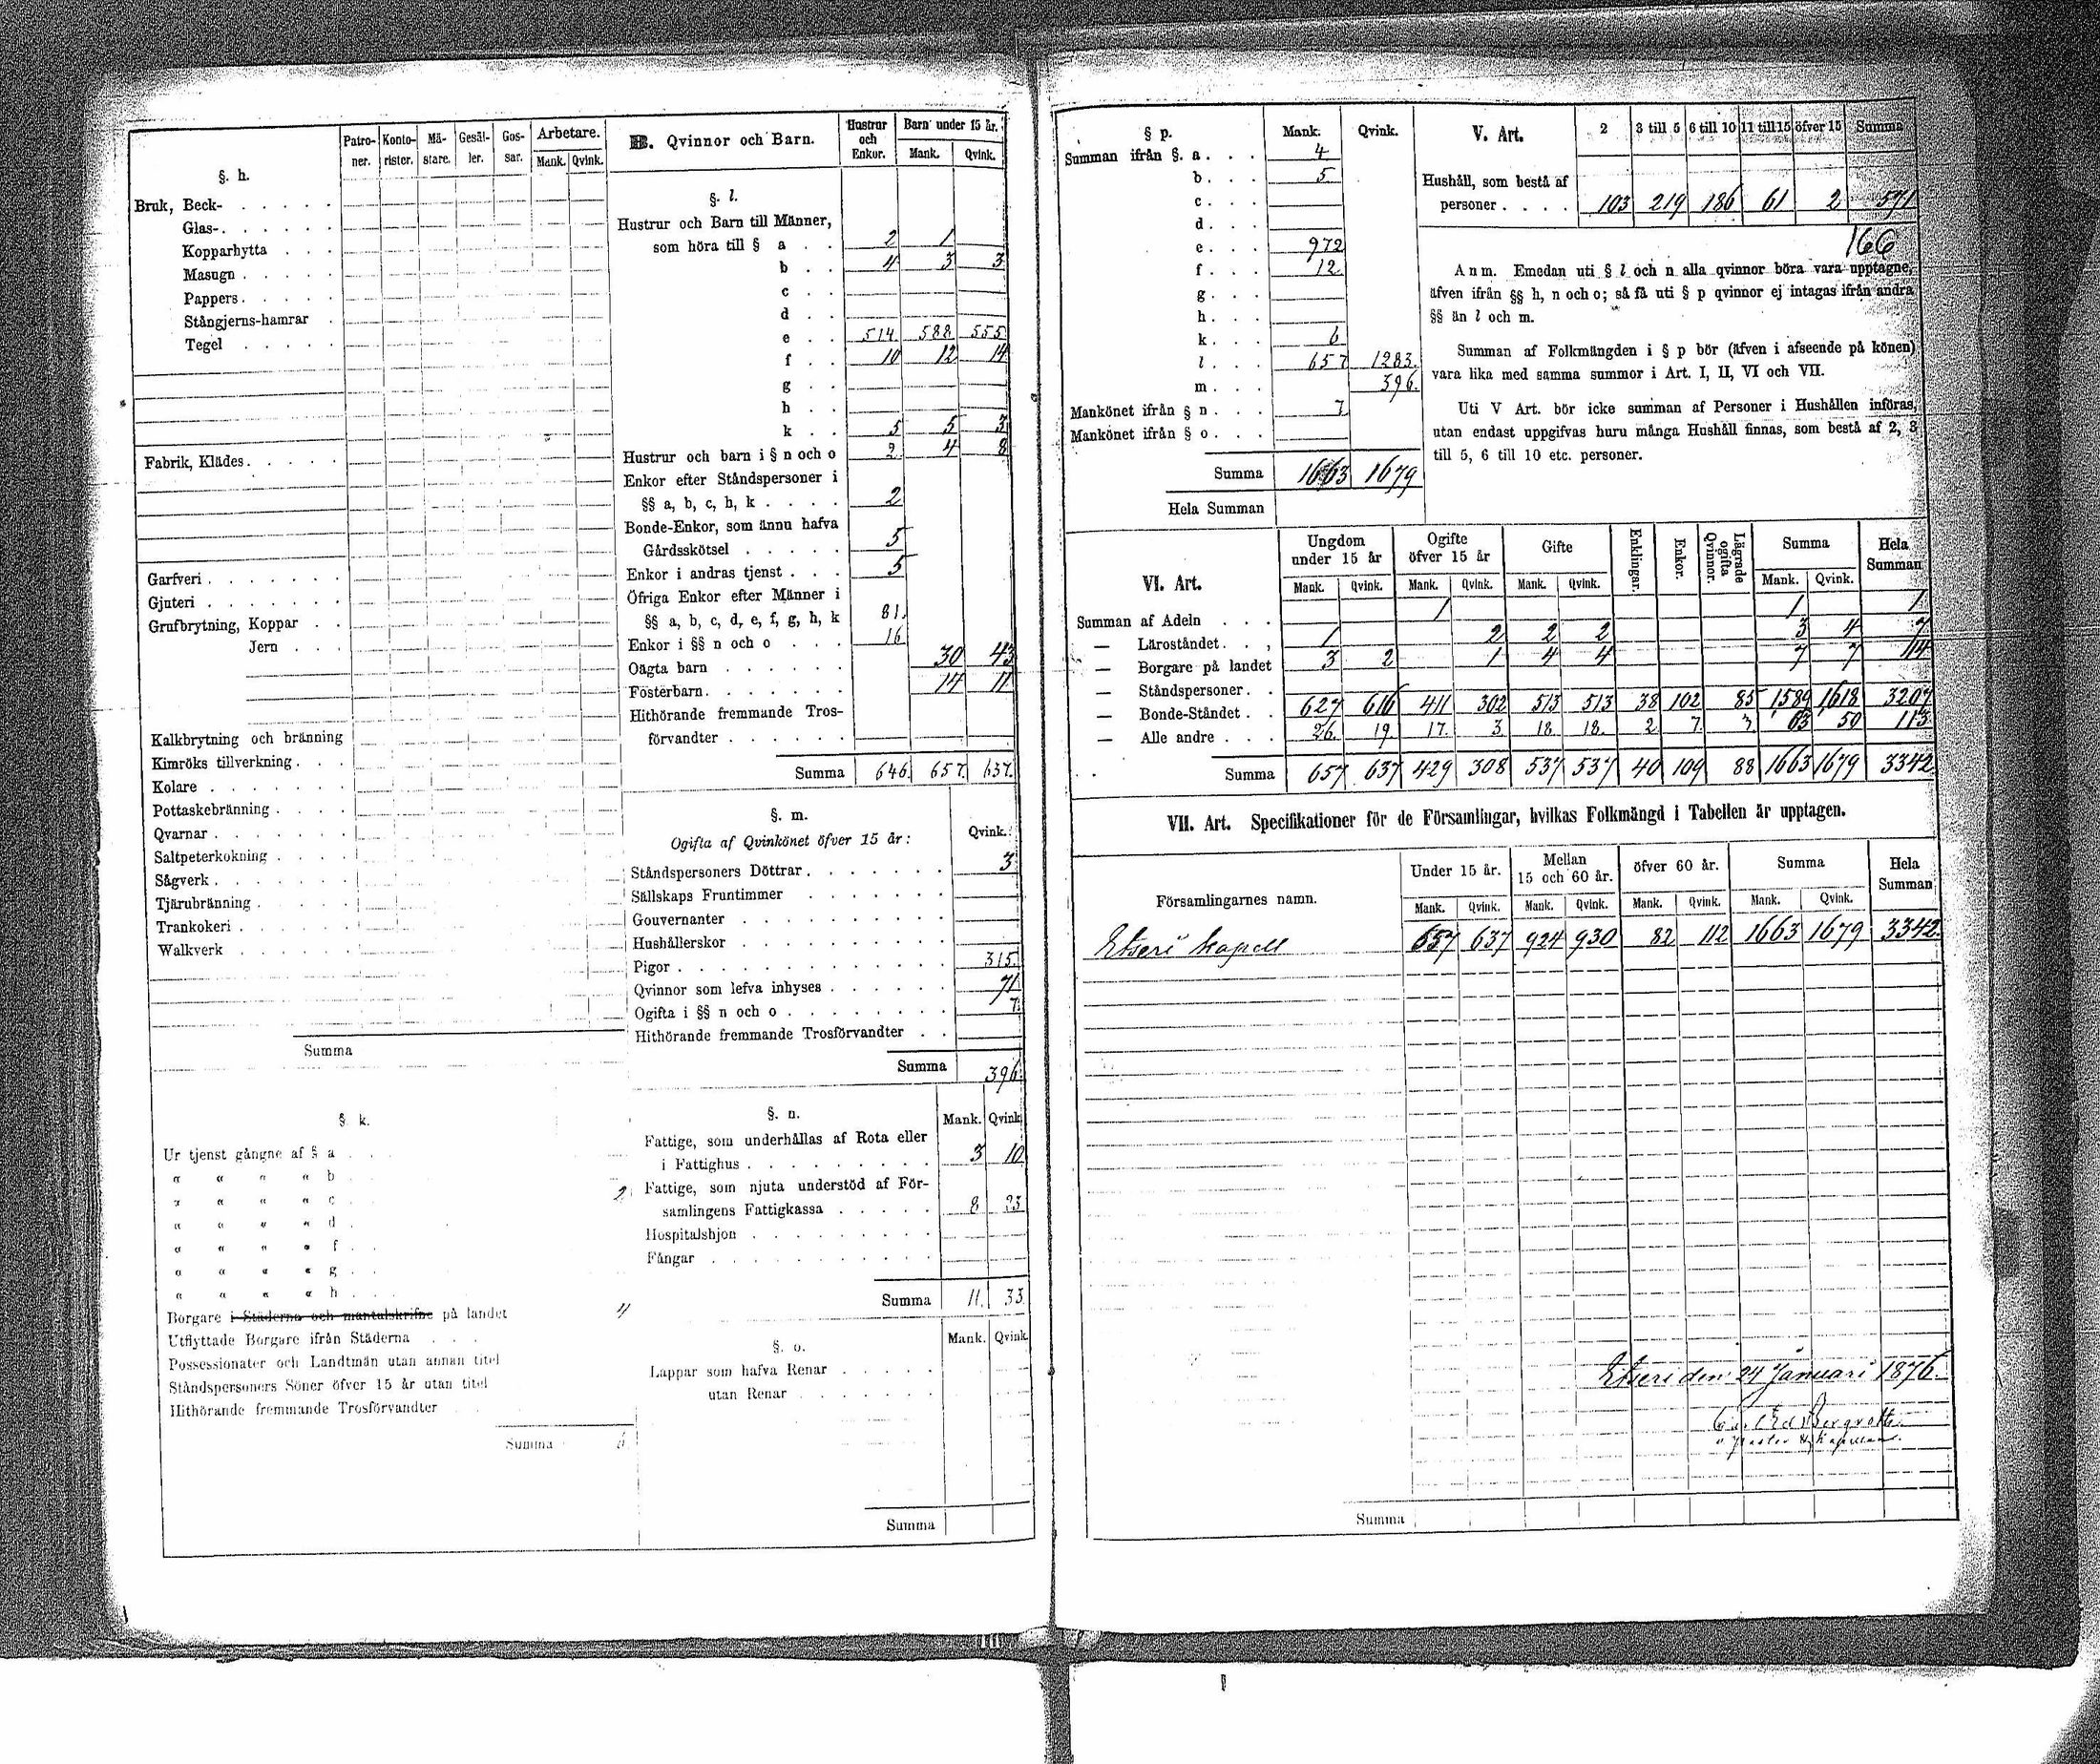 Patro-ner. Konto-rister. Mä-stare. Gesäl-ler. Gos-sar. Arbetare. Mank. Qvink.
§. h.
Bruk, Beck-
Glas-
Kopparhytta
Masugn
Pappers
Stångjerns-hamrar
Tegel
Fabrik, Klädes
Garfveri
Gjuteri
Grufbrytning, Koppar
Jern
Kalkbrytning och bränning
Kimröks tillverkning
Kolare
Pottaskebränning
Qvarnar
Saltpeterkokning
Sågverk
Tjärubränning
Trankokeri
Walkverk
Summa
§. k.
Ur tjenst gångne af § a
" " " " b
" " " " c 2
" " " " d
" " " " f
" " " " g
" " " " h
Borgare i Städerna och mantalskrifne på landet 4
Utflyttade Borgare ifrån Städerna
Possessionater och Landtmän utan annan titel
Ståndspersoners Söner öfver 15 år utan titel
Hithörande fremmande Trosförvandter
Summa 6
B. Qvinnor och Barn. Hustrur och Enkor. Barn under 15 år. Mank. Qvink.
§. l.
Hustrur och Barn till Männer,
som höra till § a 2 1
b 4 3 3
c
d
e 514 588 555
f 10 12 14
g
h
k 5 5 3
Hustrur och barn i § n och o 2 4 8
Enkor efter Ståndspersoner i
§§ a, b, c, h, k 2
Bonde-Enkor, som ännu hafva
Gårdsskötsel 5
Enkor i andras tjenst 5
Öfriga Enkor efter Männer i
§§ a, b, c, d, e, f, g, h, k 81.
Enkor i §§ n och o 16
Oägta barn 30 43
Fosterbarn 14 11
Hithörande fremmande Tros-
förvandter
Summa 646. 657. 637.
§. m.
Ogifta af Qvinkönet öfver 15 år: Qvink.
Ståndspersoners Döttrar 3
Sällskaps Fruntimmer
Gouvernanter
Hushållerskor
Pigor 315.
Qvinnor som lefva inhyses 71
Ogifta i §§ n och o 7.
Hithörande fremmande Trosförvandter
Summa 396.
§. n. Mank. Qvink
Fattige, som underhållas af Rota eller
i Fattighus 3 10
Fattige, som njuta understöd af För-
samlingens Fattigkassa 8 23
Hospitalshjon
Fångar
Summa 11. 33.
§. o. Mank. Qvink
Lappar som hafva Renar
utan Renar
Summa
§ p. Mank. Qvink.
Summan ifrån §. a 4
b 5
c
d
e 972
f 12
g
h
k 6
l 657 1283.
m 396.
Mankönet ifrån § n 7
Mankönet ifrån § o
Summa 1663 1679
Hela Summan
V. Art. 2 3 till 5 6 till 10 11 till 15 öfver 15 Summa
Hushåll, som bestå af
personer 103 219 186 61 2 571
166
Anm. Emedan uti § l och n alla qvinnor böra vara upptagne,
äfven ifrån §§ h, n och o; så få uti § p qvinnor ej intagas ifrån andra
§§ än l och m.
Summan af Folkmängden i § p bör (äfven i afseende på könen)
vara lika med samma summor i Art. I, II, VI och VII.
Uti V Art. bör icke summan af Personer i Hushållen införas,
utan endast uppgifvas huru många Hushåll finnas, som bestå af 2, 3
till 5, 6 till 10 etc. personer.
VI. Art. Ungdom under 15 år Ogifte öfver 15 år Gifte Enklingar. Enkor. Lägrade ogifta Qvinnor. Summa Hela Summan
Mank. Qvink. Mank. Qvink. Mank. Qvink. Mank. Qvink.
Summan af Adeln 1 1 1
— Läroståndet 1 2 2 2 3 4 7
— Borgare på landet 3 2 1 4 4 7 7 14
— Ståndspersoner
— Bonde-Ståndet 627 616 411 302 513 513 38 102 85 1589 1618 3207
— Alle andre 26. 19 17. 3 18. 18. 2 7. 3 63 50 113
Summa 657 637 429 308 537 537 40 109 88 1663 1679 3342
VII. Art. Specifikationer för de Församlingar, hvilkas Folkmängd i Tabellen är upptagen.
Församlingarnes namn. Under 15 år. Mellan 15 och 60 år. öfver 60 år. Summa Hela Summan
Mank. Qvink. Mank. Qvink. Mank. Qvink. Mank. Qvink.
Etseri kapell 657 637 924 930 82 112 1663 1679 3342.
Etseri den 24 Januari 1876.
Summa